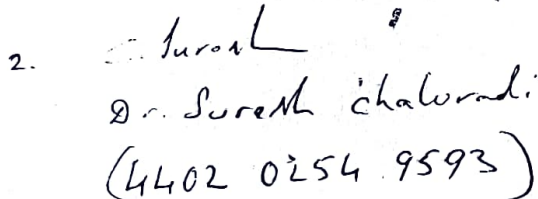 2. Suresh
Dr. Suresh chaluradi
(4402 0254 9593)